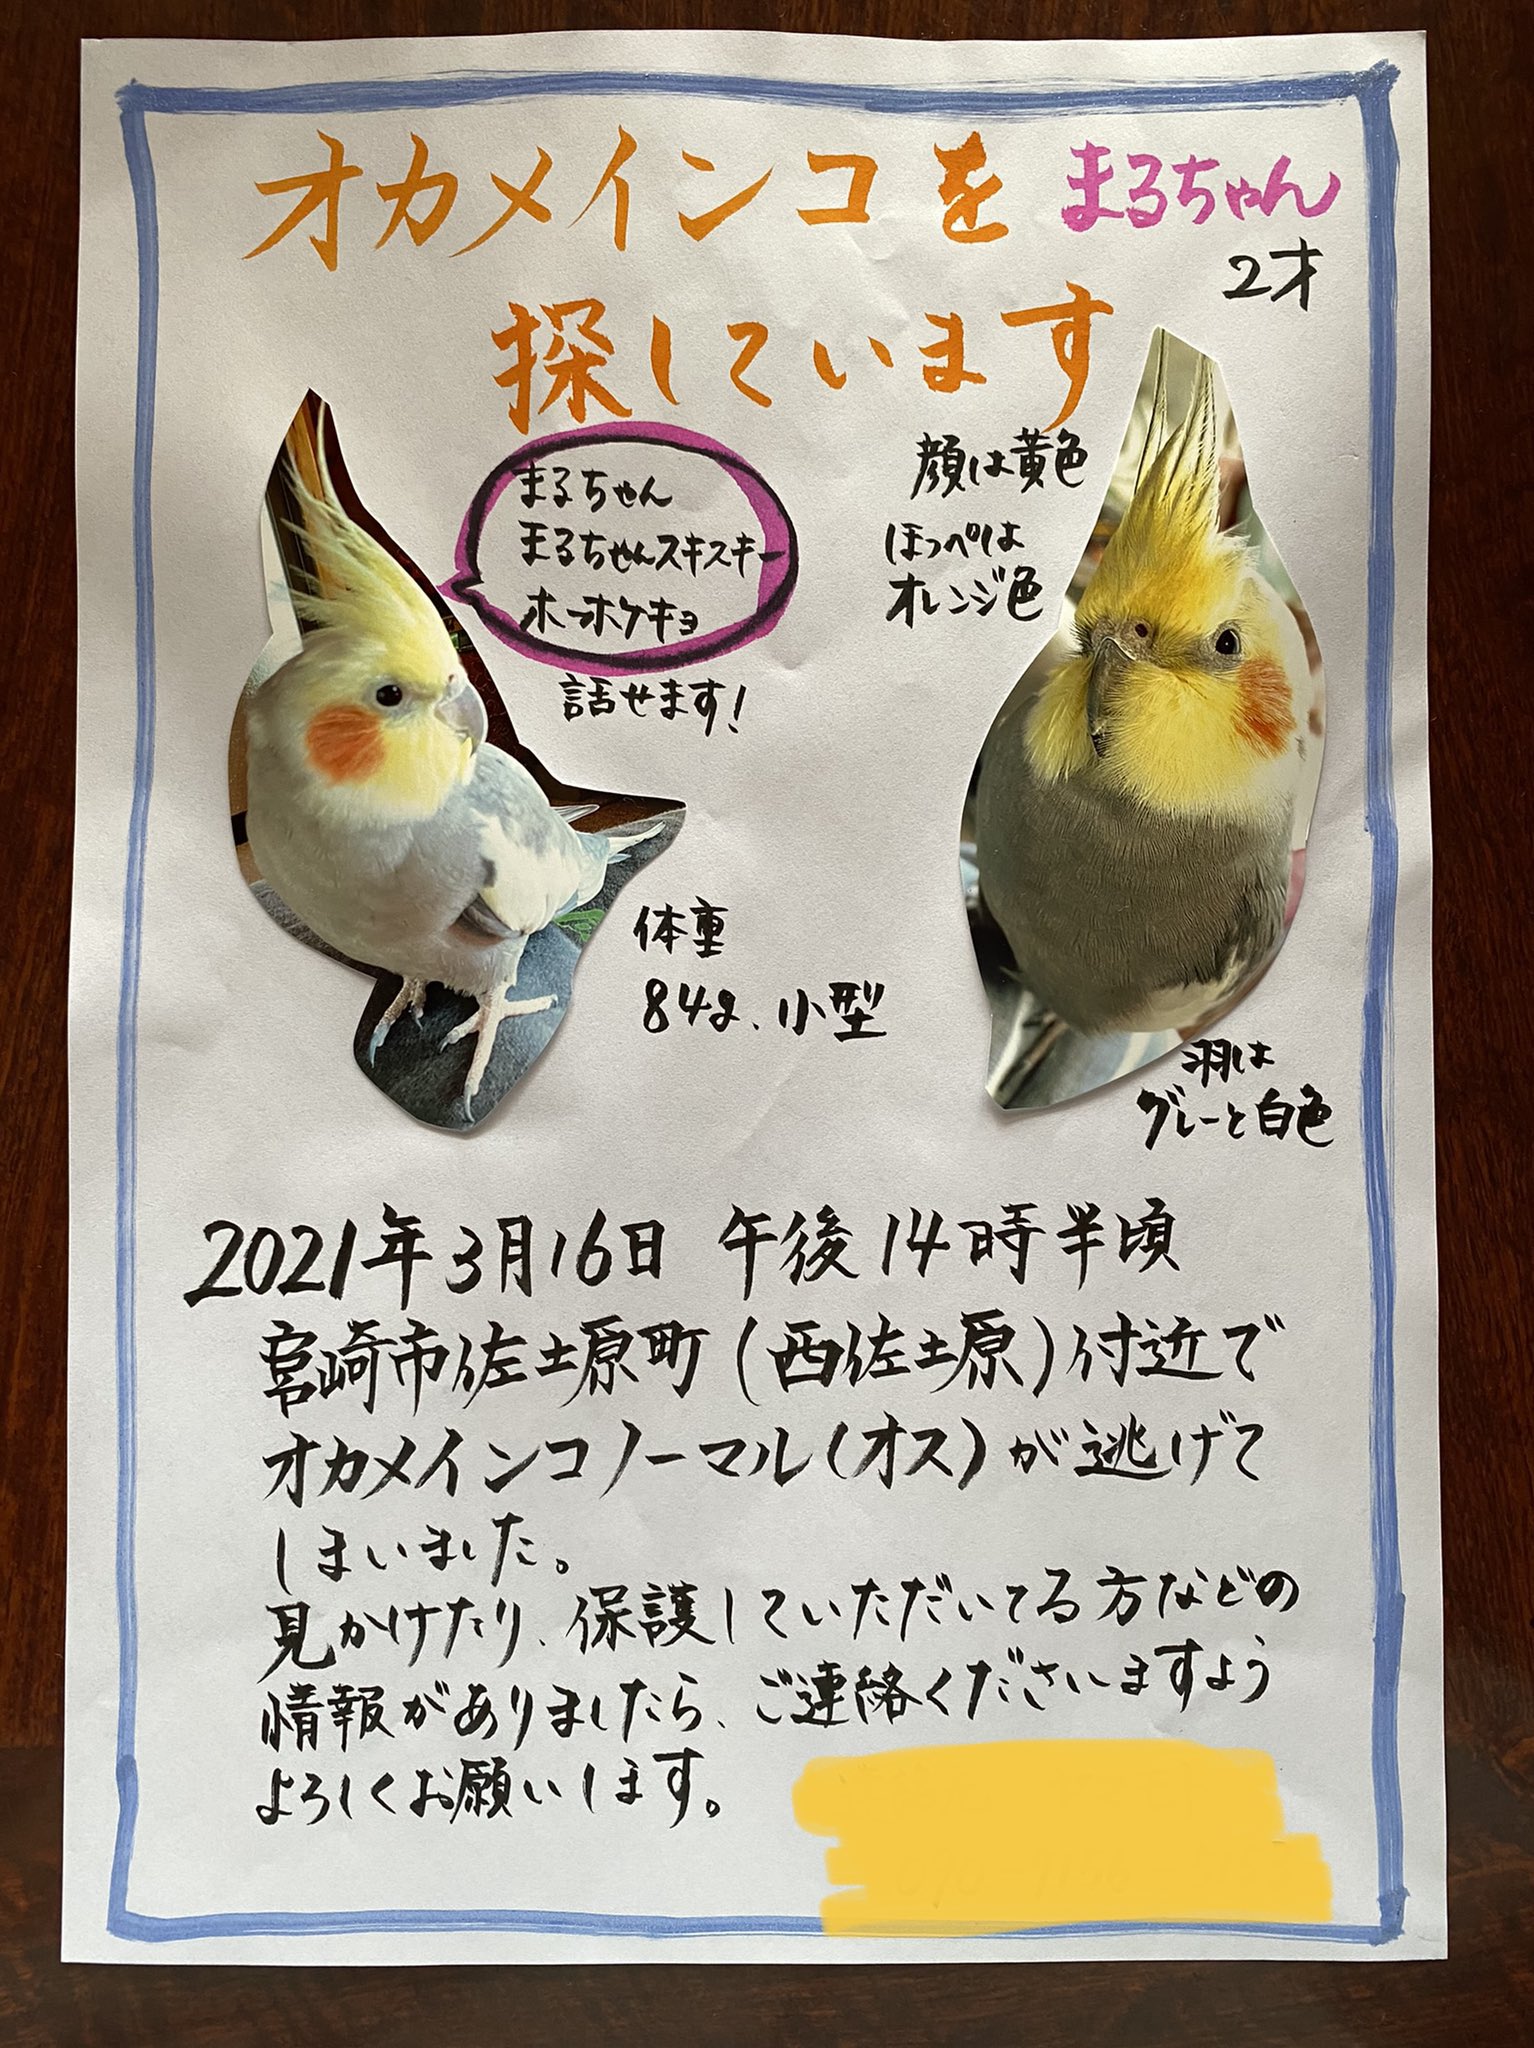 オカメインコを
まるちゃん
2才
探しています
まるちゃん
まるちゃんスキスキー
ホーホケキョ
話せます！
顔は黄色
ほっぺは
オレンジ色
体重
84g、小型
羽は
グレーと白色
2021年3月16日 午後14時半頃
宮崎市佐土原町(西佐土原)付近で
オカメインコノーマル(オス)が逃げて
しまいました。
見かけたり、保護していただいてる方などの
情報がありましたら、ご連絡くださいますよう
よろしくお願いします。